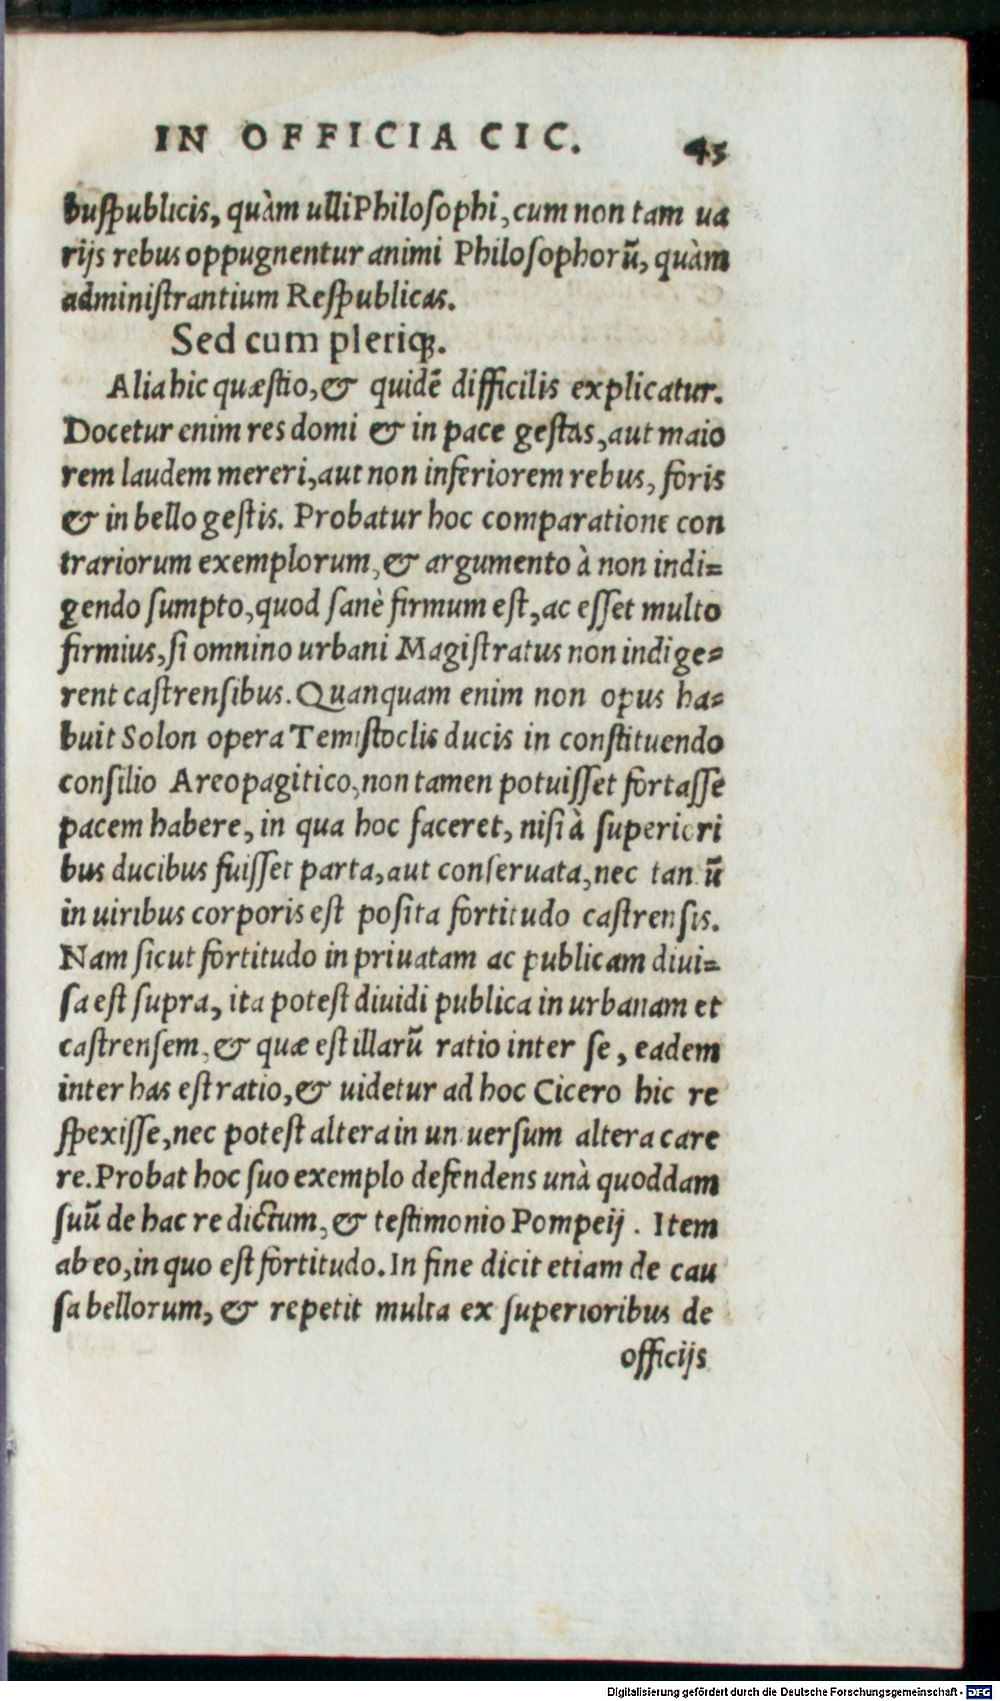 IN OFFICIA CIC. 45
buspublicis, quàm ulli Philosophi, cum non tam ua
rijs rebus oppugnentur animi Philosophorū, quàm
administrantium Respublicas.
Sed cum pleriq;.
Alia hic quæstio, & quidē difficilis explicatur.
Docetur enim res domi & in pace gestas, aut maio
rem laudem mereri, aut non inferiorem rebus, foris
& in bello gestis. Probatur hoc comparatione con
trariorum exemplorum, & argumento à non indi=
gendo sumpto, quod sanè firmum est, ac esset multo
firmius, si omnino urbani Magistratus non indige=
rent castrensibus. Quanquam enim non opus ha=
buit Solon opera Temistoclis ducis in constituendo
consilio Areopagitico, non tamen potuisset fortasse
pacem habere, in qua hoc faceret, nisi à superiori
bus ducibus fuisset parta, aut conseruata, nec tantū
in uiribus corporis est posita fortitudo castrensis.
Nam sicut fortitudo in priuatam ac publicam diui=
sa est supra, ita potest diuidi publica in urbanam et
castrensem, & quæ est illarū ratio inter se, eadem
inter has est ratio, & uidetur ad hoc Cicero hic re
spexisse, nec potest altera in uniuersum altera care
re. Probat hoc suo exemplo defendens unà quoddam
suū de hac re dictum, & testimonio Pompeij. Item
ab eo, in quo est fortitudo. In fine dicit etiam de cau
sa bellorum, & repetit multa ex superioribus de
officijs
Digitalisierung gefördert durch die Deutsche Forschungsgemeinschaft - DFG